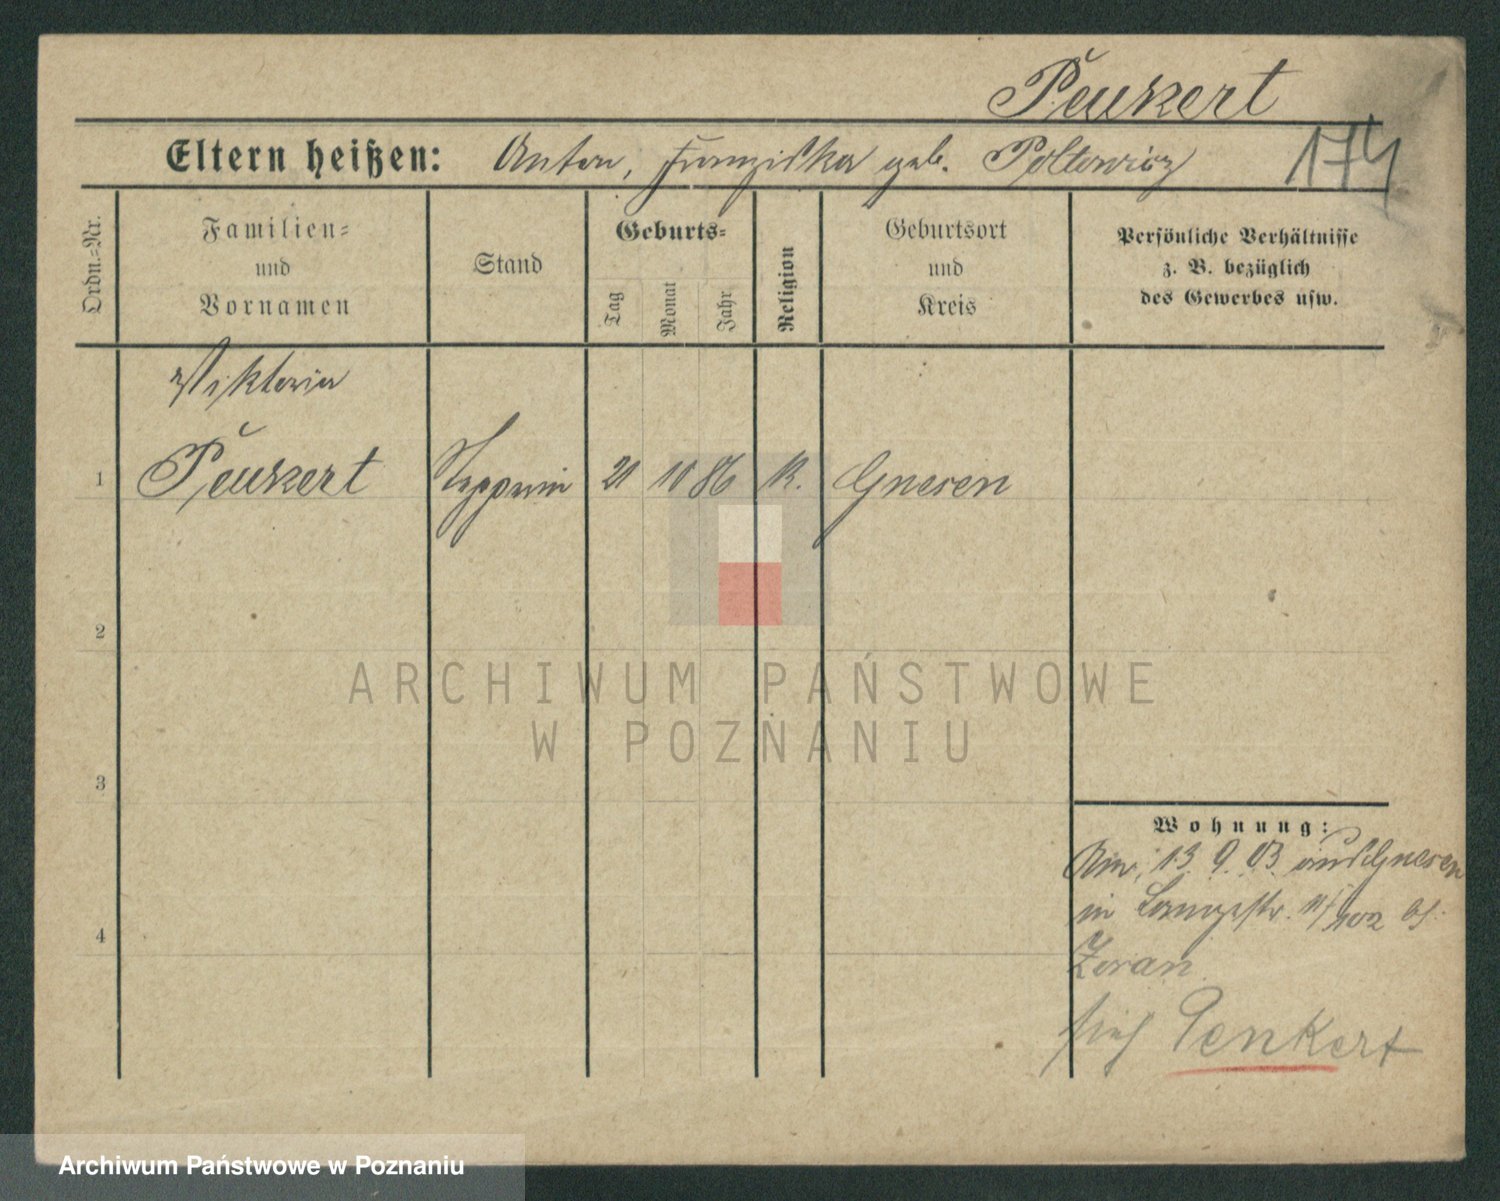 Peukert
Eltern heißen: Anton, Franziska geb. Poltowicz 174
Ordn.=Nr.
Familien=
und
Vornamen
Stand
Geburts=
Tag
Monat
Jahr
Religion
Geburtsort
und
Kreis
Persönliche Verhältnisse
z. B. bezüglich
des Gewerbes usw.
Viktoria
1 Peukert 21 10 86 K. Gnesen
2
3
4
Wohnung:
Am, 13 9. 03 aus Gnesen
in Langestr. 11/102 bf.
Zoran
sieh Penkert
ARCHIWUM PAŃSTWOWE
W POZNANIU
Archiwum Państwowe w Poznaniu